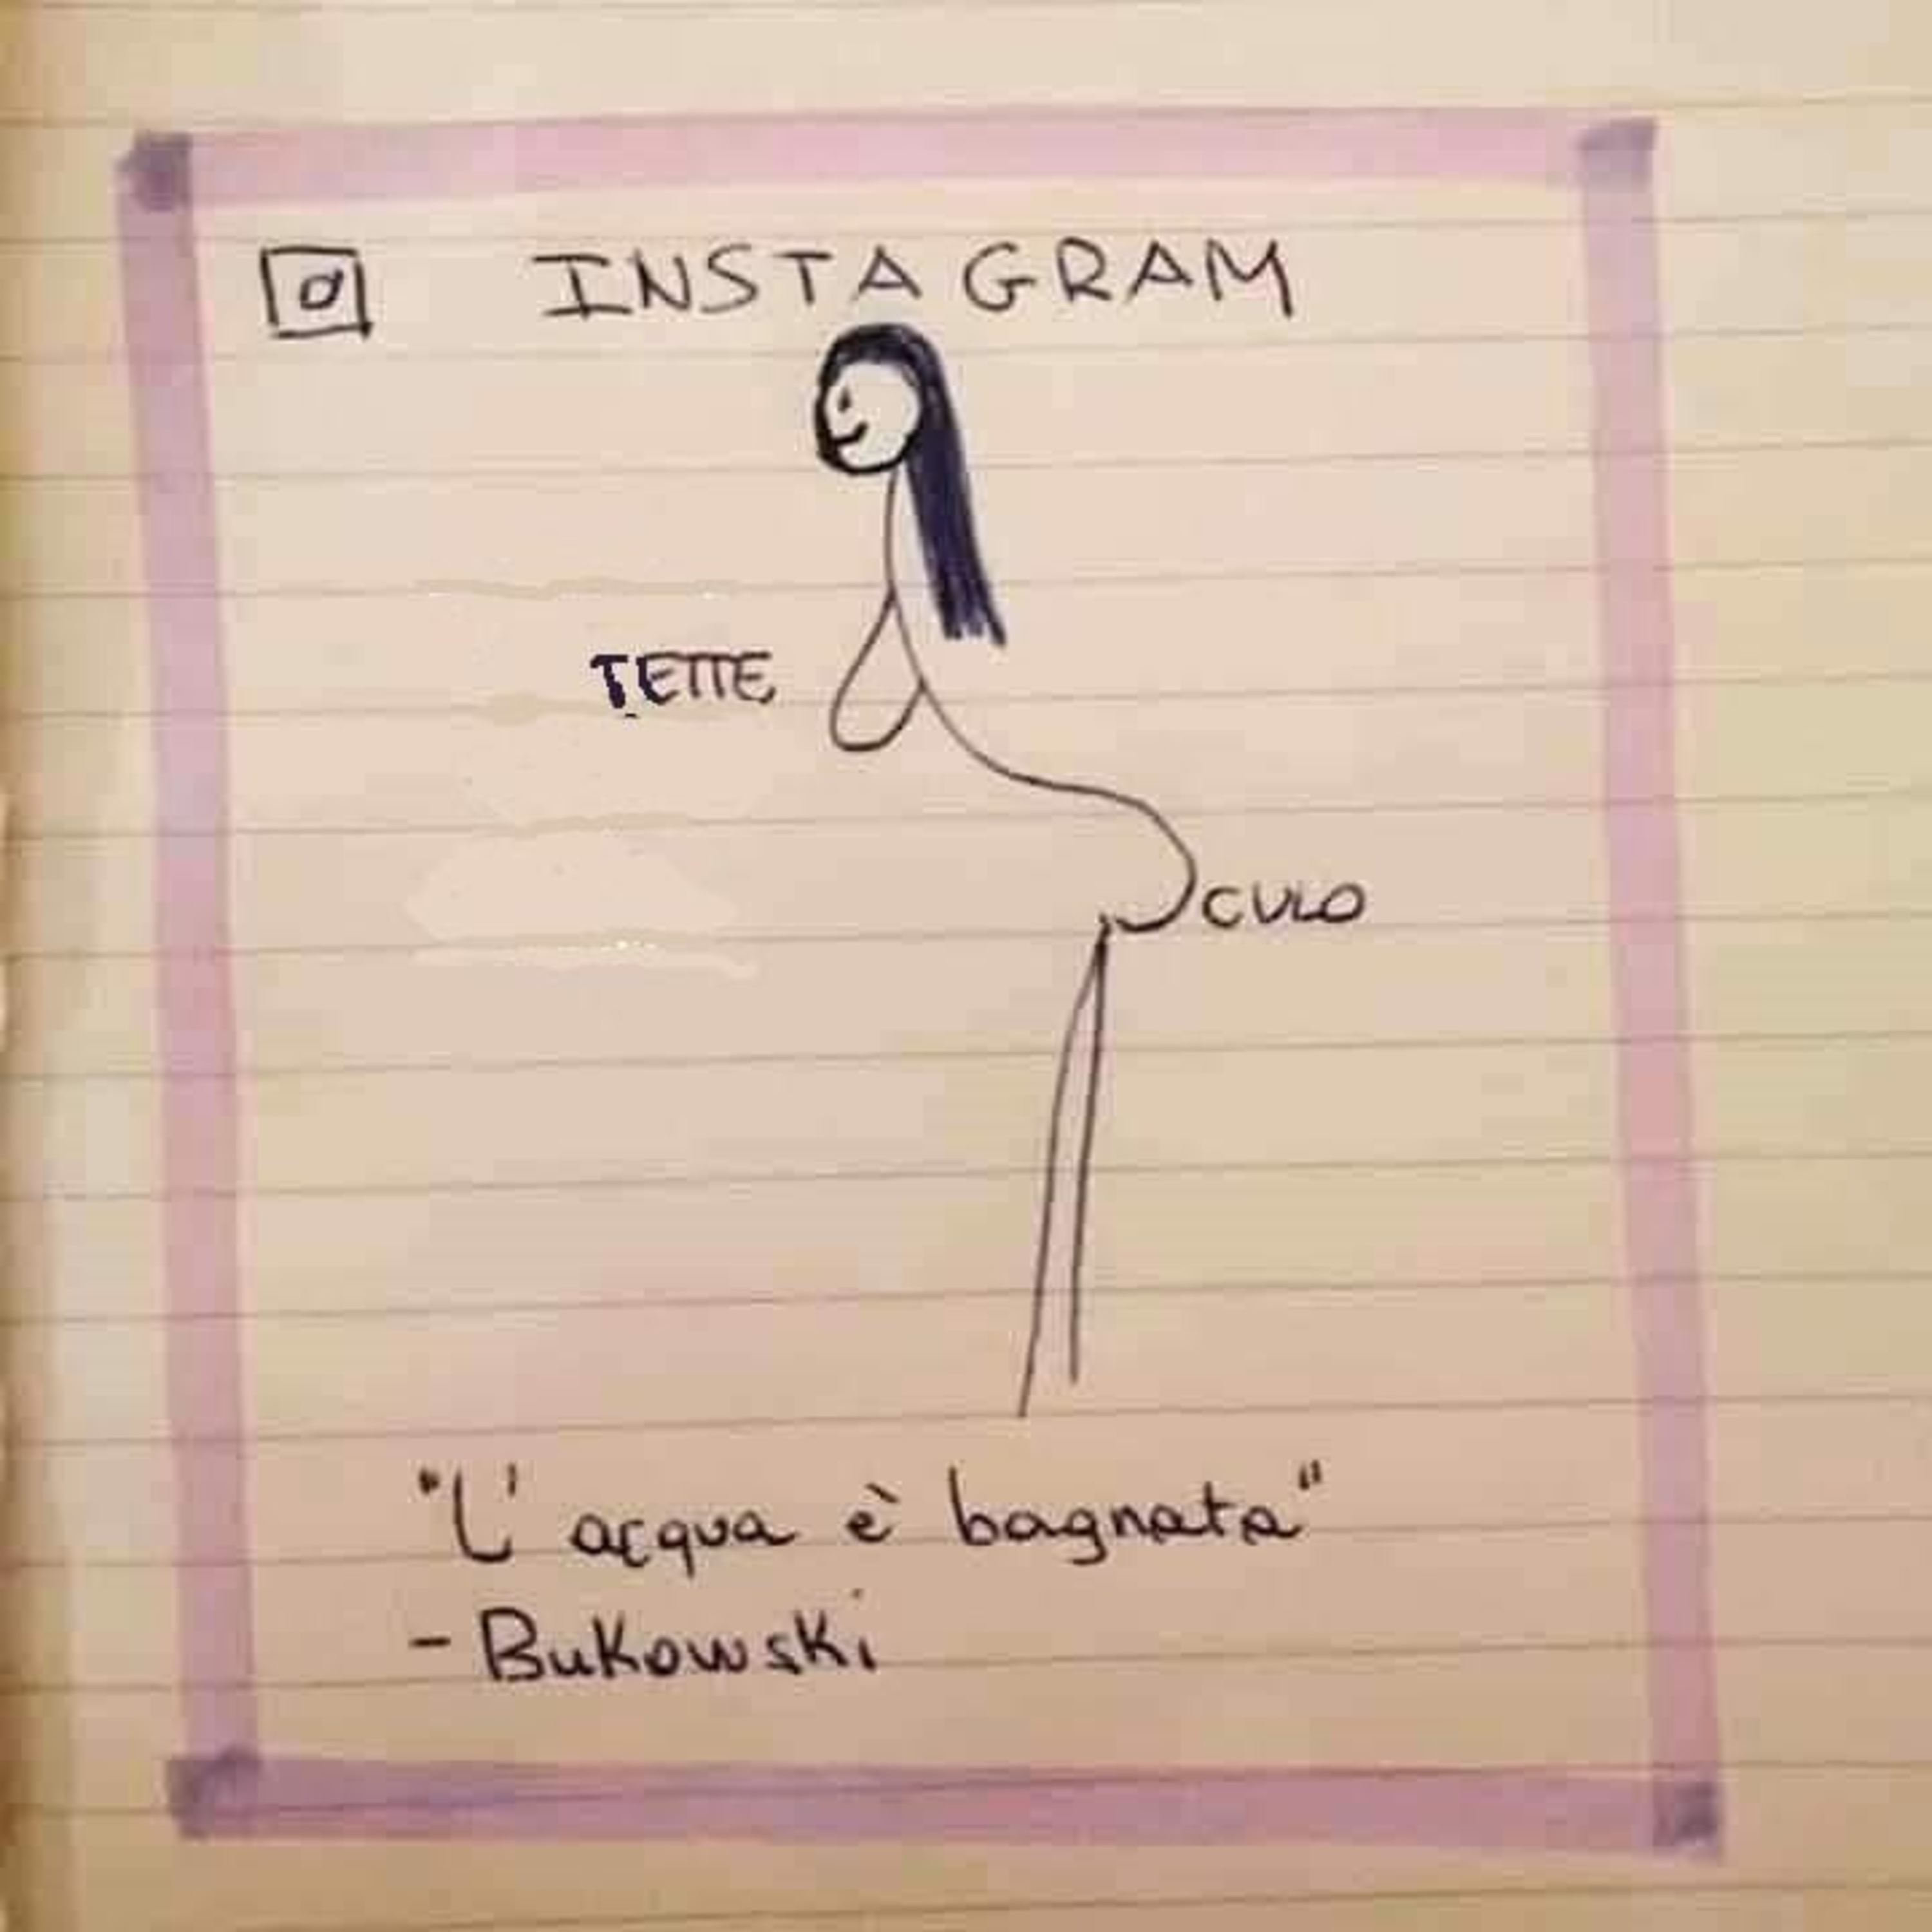 INSTAGRAM
TETTE
CULO
"L' acqua è bagnata"
- Bukowski